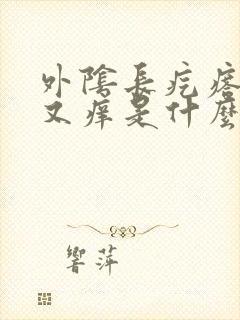 外陰長疙瘩
又痒是什麼
響萍